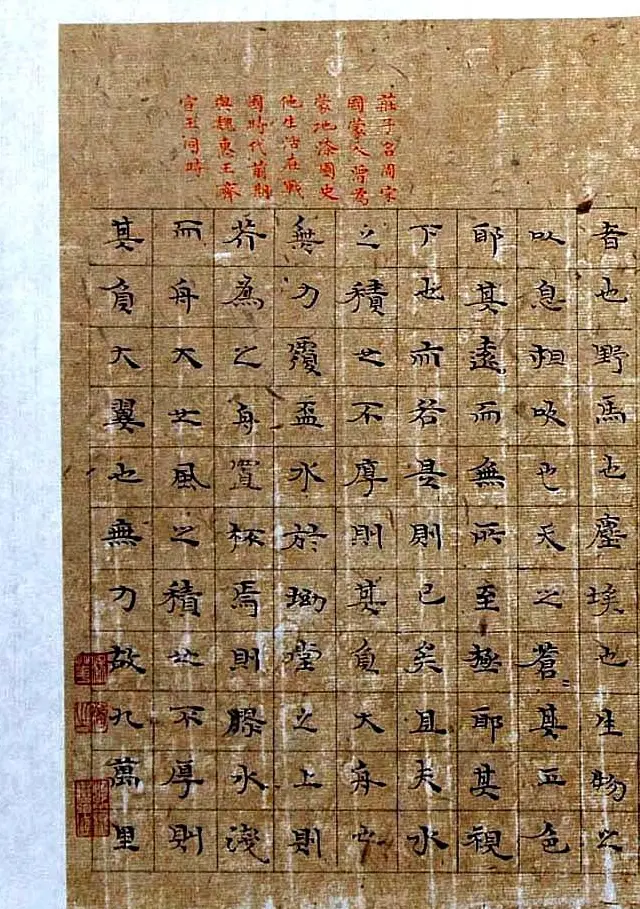 莊子名周宋
國蒙人曾為
蒙地漆園史
他生活在戰
國時代前期
與魏惠王齊
宣王同時
者也野馬也塵埃也生物之
以息相吹也天之蒼〻其正色
耶其遠而無所至極耶其視
下也亦若是則已矣且夫水
之積也不厚則其負大舟也
無力覆盃水於坳堂之上則
芥為之舟置杯焉則膠水淺
而舟大也風之積也不厚則
其負大翼也無力故九萬里